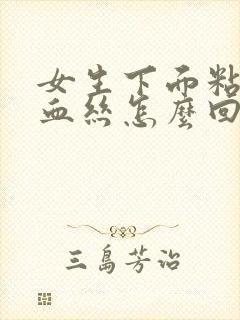 女生下而粘
血丝怎麼回
三島芳治